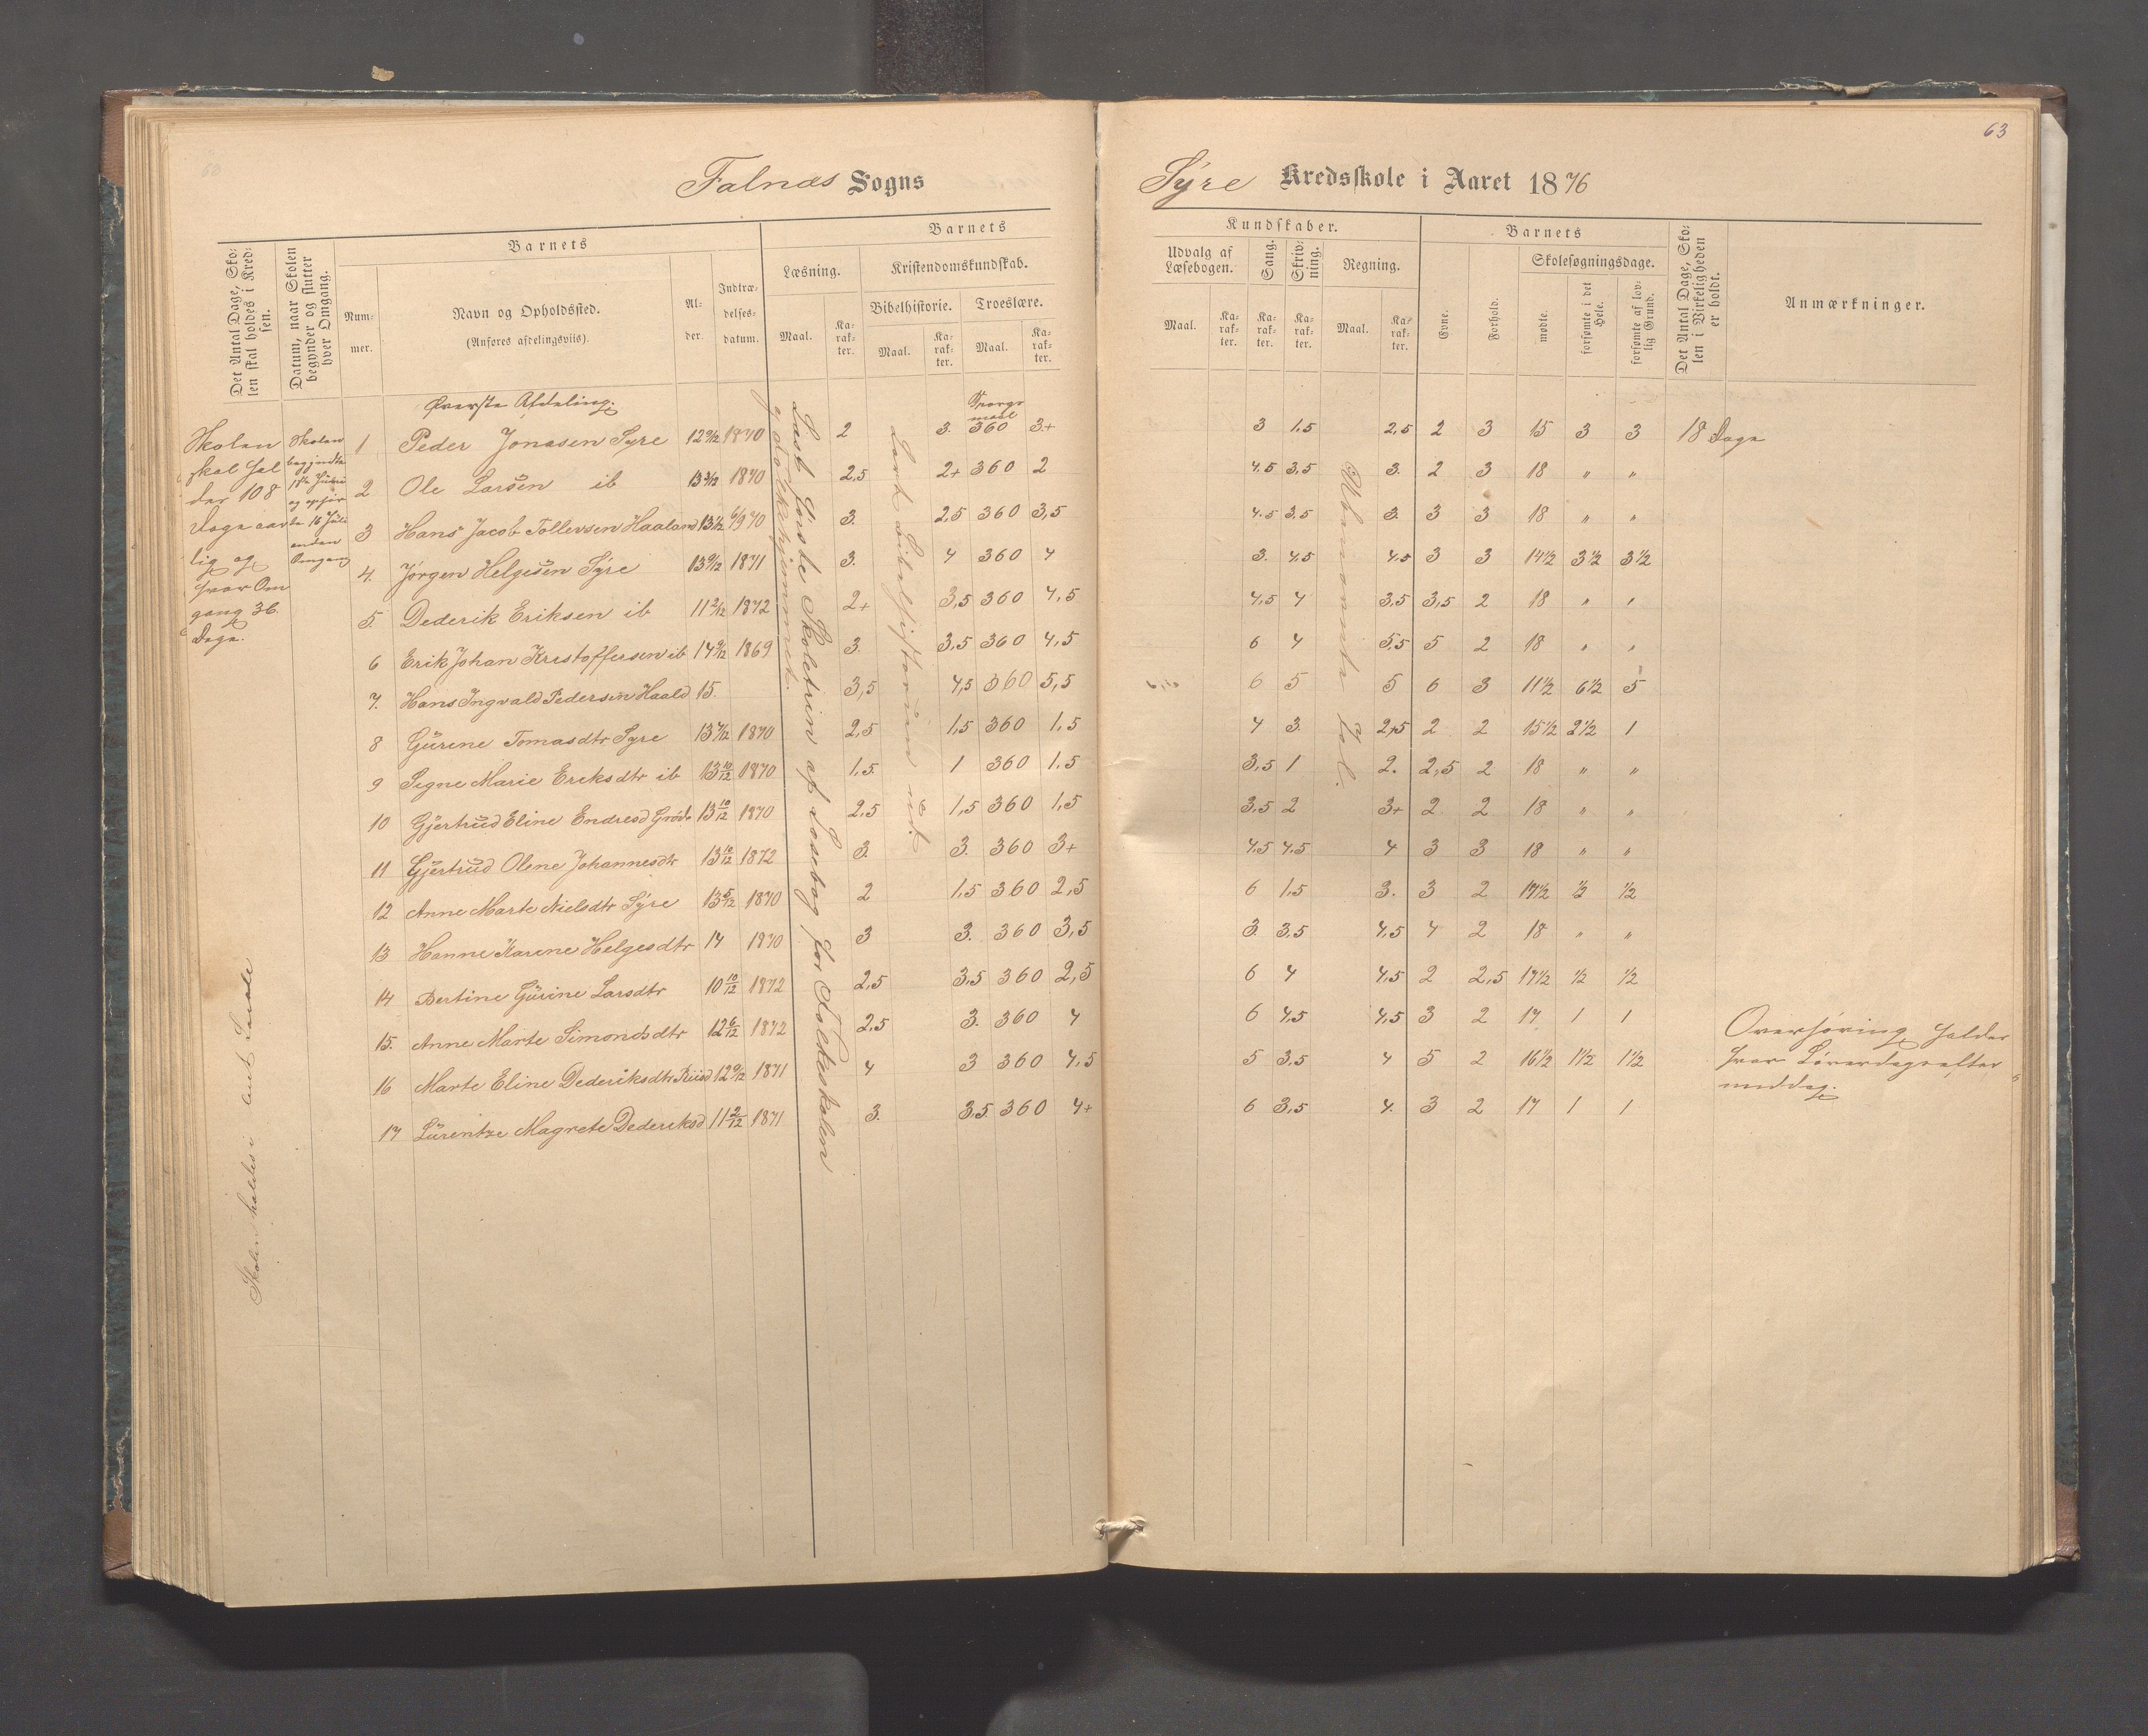 63
Falnæs Sogns
Syre Kredsskole i Aaret 1876
Det Antal Dage, Sko-
len skal holdes i Kred-
sen.
Datum, naar Skolen
begynder og slutter
hver Omgang.
Barnets
Num-
mer.
Navn og Opholdssted.
(Anføres afdelingsviis).
Al-
der.
Indtræ-
delses-
datum.
Barnets
Læsning.
Maal.
Ka-
rak-
ter.
Kristendomskundskab.
Bibelhistorie.
Maal.
Ka-
rak-
ter.
Troeslære.
Maal.
Ka-
rak-
ter.
Kundskaber.
Udvalg af
Læsebogen.
Maal.
Ka-
rak-
ter.
Sang.
Ka-
rak-
ter.
Skriv-
ning.
Ka-
rak-
ter.
Regning.
Maal.
Ka-
rak-
ter.
Barnets
Evne.
Forhold.
Skolesøgningsdage.
mødte.
forsømte i det
Hele.
forsømte af lov-
lig Grund.
Det Antal Dage, Sko-
len i Virkeligheden
er holdt.
Anmærkninger.
Skolen
skal hol
des 108
Dage aar
lig og
hver Om
gang 36.
Dage.
Skolen
begyndte
Omgang
Skolen holdes i leiet Locale
Øverste Afdeling.
Spørgs
maal
1 Peder Jonasen Syre 12 9/12 1870 2 3. 360 3+ 3 1.5 2,5 2 3 15 3 3 18 Dage
2 Ole Larsen ib 13 3/12 1870 2,5 2+ 360 2 4.5 3,5 3. 2 3 18 " "
3 Hans Jacob Tollevsen Haaland 13 1/2 6/9 70 3. 2,5 360 3,5 4.5 3.5 3. 3 3 18 " "
4. Jørgen Helgesen Syre 13 9/12 1871 3. 4 360 4 3. 4.5 4.5 3 3 14 1/2 3 1/2 3 1/2
5. Dederik Eriksen ib 11 2/12 1872 2+ 3,5 360 4,5 4,5 4 3.5 3,5 2 18 " "
6 Erik Johan Kristoffersen ib 14 9/12 1869 3. 3,5 360 4,5 6 4 5,5 5 2 18 " "
7. Hans Ingvald Pedersen Haald 15. 3,5 4,5 360 5,5 6 5 5 6 3 11 1/2 6 1/2 5
8 Gurine Tomasdtr Syre 13 7/12 1870 2,5 1,5 360 1,5 4 3. 2,5 2 2 15 1/2 2 1/2 1
9 Signe Marie Eriksdtr ib 13 10/12 1870 1,5. 1 360 1.5 3,5 1 2. 2,5 2 18 " "
10 Gjertrud Eline Endresd 13 10/12 1870 2,5 1,5 360 1,5 3.5 2 3+ 2 2 18 " "
11 Gjertrud Olene Johannesdtr 13 10/12 1872 3. 3. 360 3+ 4.5 4.5 4 3 3 18 " "
12 Anne Marte Nielsdtr Syre 13 5/12 1870 2 1.5 360 2,5 6 1.5 3. 3 2 17 1/2 1/2 1/2
13 Hanne Karine Helgesdtr 14 1870 3 3. 360 3,5 3. 3.5 4,5 4 2 18 " "
14 Bertine Gurine Larsdtr 10 10/12 1872 2,5 3,5 360 2,5 6 4 4,5 2 2,5 17 1/2 1/2 1/2
15. Anne Marte Simondsdtr 12 6/12 1872 2,5 3. 360 4 6 4.5 4,5 3 2 17 1 1
16 Marte Eline Dederiksdtr 12 9/12 1871 4 3 360 4,5 5 3.5 4 5 2 16 1/2 1 1/2 1 1/2
17 Lurintze Magrete Dederiksd 11 2/12 1871 3. 3.5 360 4+ 6 3,5 4. 3 2 17 1 1
Læst første Skoletrin af Læsebog for Folkeskolen
og Folkehjemmet.
Lært Bibelhistorien ud.
Overhøring holdes
hver Løverdagsefter
middag.